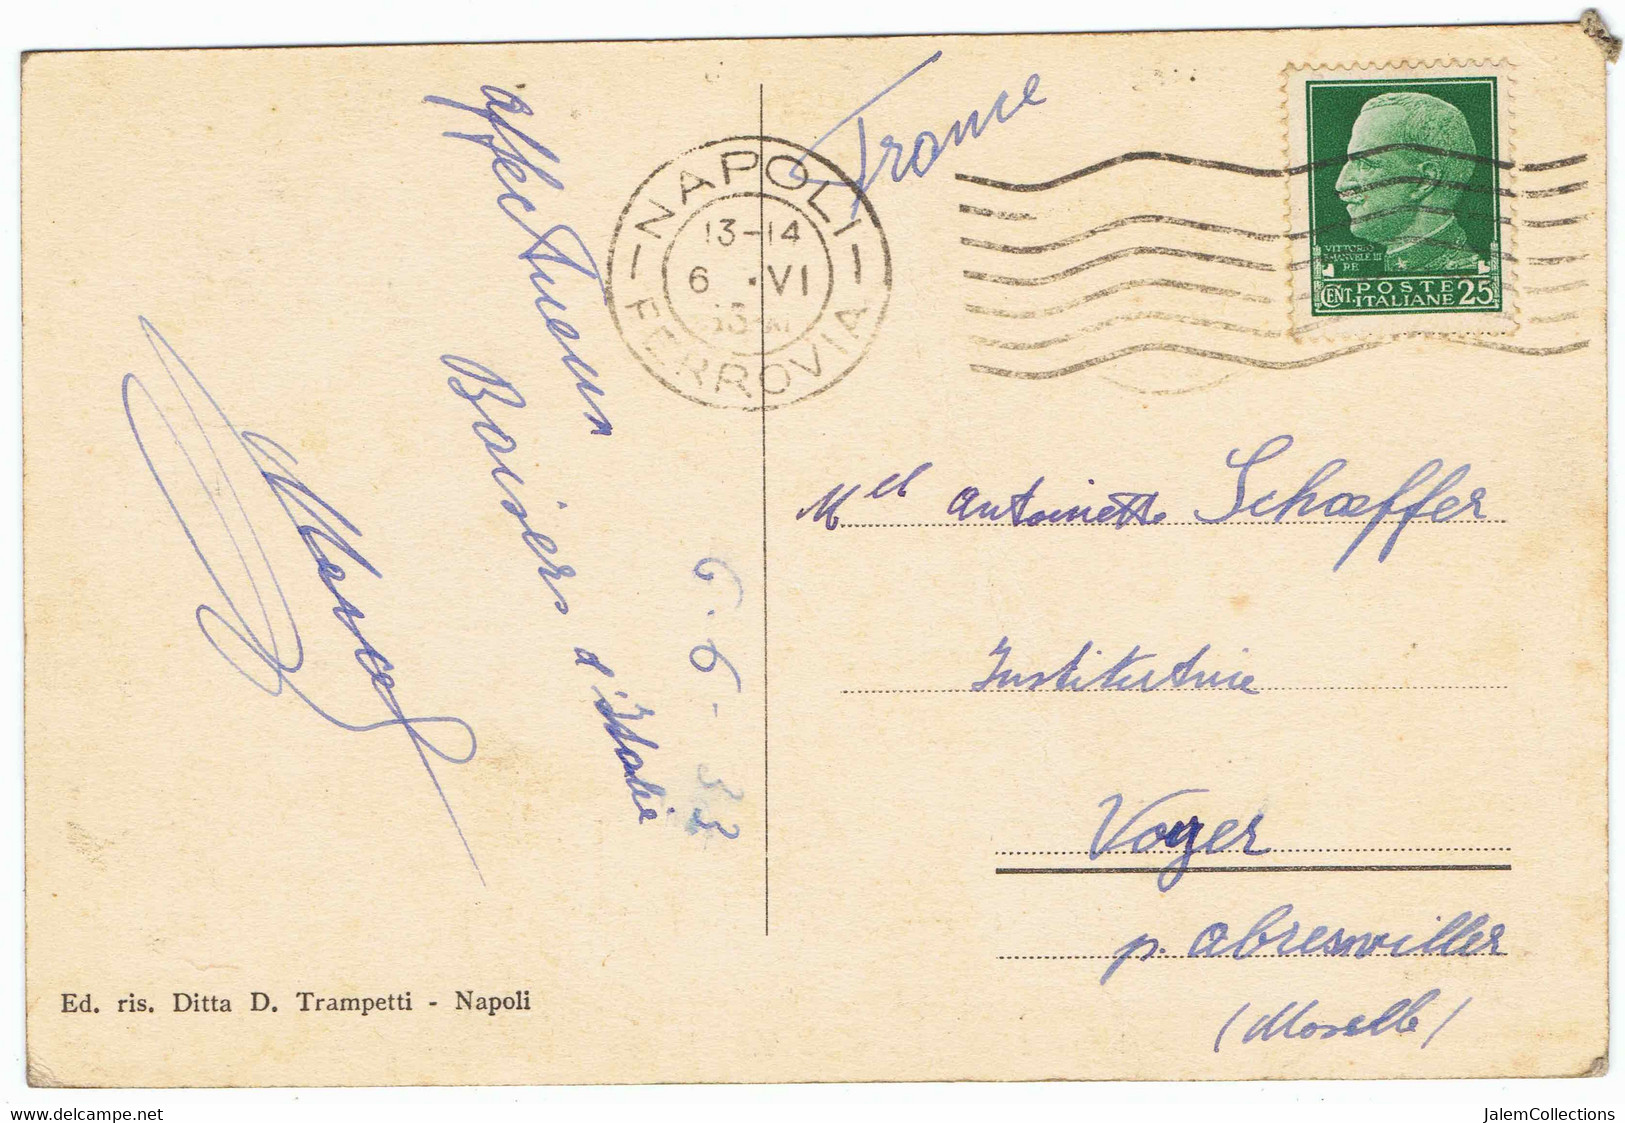 affectueux
Baisers d'Italie
6.6-33
Marcel
Ed. ris. Ditta D. Trampetti - Napoli
NAPOLI
13-14
6 . VI
FERROVIA
France
VITTORIO
EMANVELE III
RE
POSTE
CENT. ITALIANE 25
Mell Antoinette Schaeffer
Institutrice
Voyer
p. Abreswiller
(Moselle)
www.delcampe.net
JalemCollections